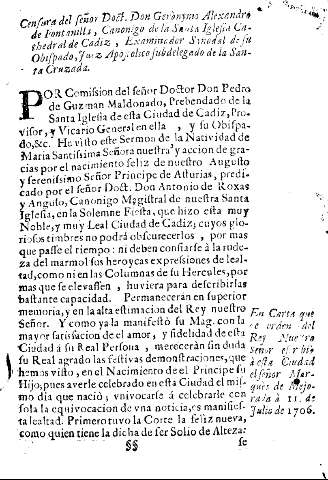 Censura del señor Doct. Don Geronymo Alexandro
de Fontanills, Canonigo de la Santa Iglesia Ca-
thedral de Cadiz, Examinador Sinodal de su
Obispado, Juez Apostolico subdelegado de la San-
ta Cruzada.
POR Comission del señor Doctor Don Pedro
de Guzman Maldonado, Prebendado de la
Santa Iglesia de esta Ciudad de Cadiz, Pro-
visor, y Vicario General en ella, y su Obispa-
do,&c. He visto este Sermon de la Natividad de
Maria Santissima Señora nuestra y accion de gra-
cias por el nacimiento feliz de nuestro Augusto
y serenissimo Señor Principe de Asturias, predi-
cado por el señor Doct. Don Antonio de Roxas
y Angulo, Canonigo Magistral de nuestra Santa
Iglesia, en la Solemne Fiesta, que hizo esta muy
Noble, y muy Leal Ciudad de Cadiz; cuyos glo-
riosos timbres no podrá obscurecerlos, por mas
que passe el tiempo: ni deben confiarse à la rude-
za del marmol sus heroycas expresiones de leal-
tad, como ni en las Columnas de su Hercules, por
mas que se elevassen, huviera para describirlas
bastante capacidad. Permanecerán en superior
memoria, y en la alta estimacion del Rey nuestro
Señor. Y como ya la manifestó su Mag. con la
mayor satisfacion de el amor, y fidelidad de esta
Ciudad à su Real Persona, merecerán sin duda
su Real agrado las festivas demonstraciones, que
hemos visto, en el Nacimiento de el Principe su
Hijo, pues averle celebrado en esta Ciudad el mis-
mo dia que naciò; y bolverse à celebrarle con
sola la equivocacion de vna noticia, es manifies-
ta lealtad. Primero tuvo la Corte la feliz nueva,
como quien tiene la dicha de ser Solio de Alteza:
§§ se
En Carta que
de orden del
Rey Nuestro
Señor escribiò
à esta Ciudad
el señor Mar-
ques de Mejo-
rada à 11. de
Julio de 1706.